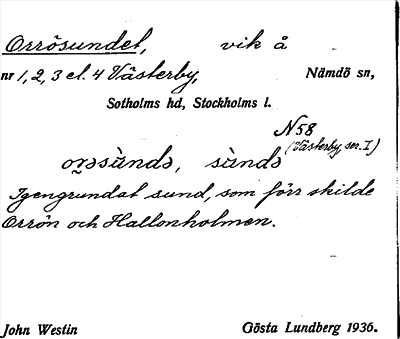 Orrösundet, vik å
nr 1, 2, 3 el. 4 Västerby, Nämdö sn,
Sotholms hd, Stockholms l.
N58
(Västerby, ser. I)
orəsùndə, sùndə
Igengrundat sund, som förr skilde
Orrön och Hallonholmen.
John Westin Gösta Lundberg 1936.